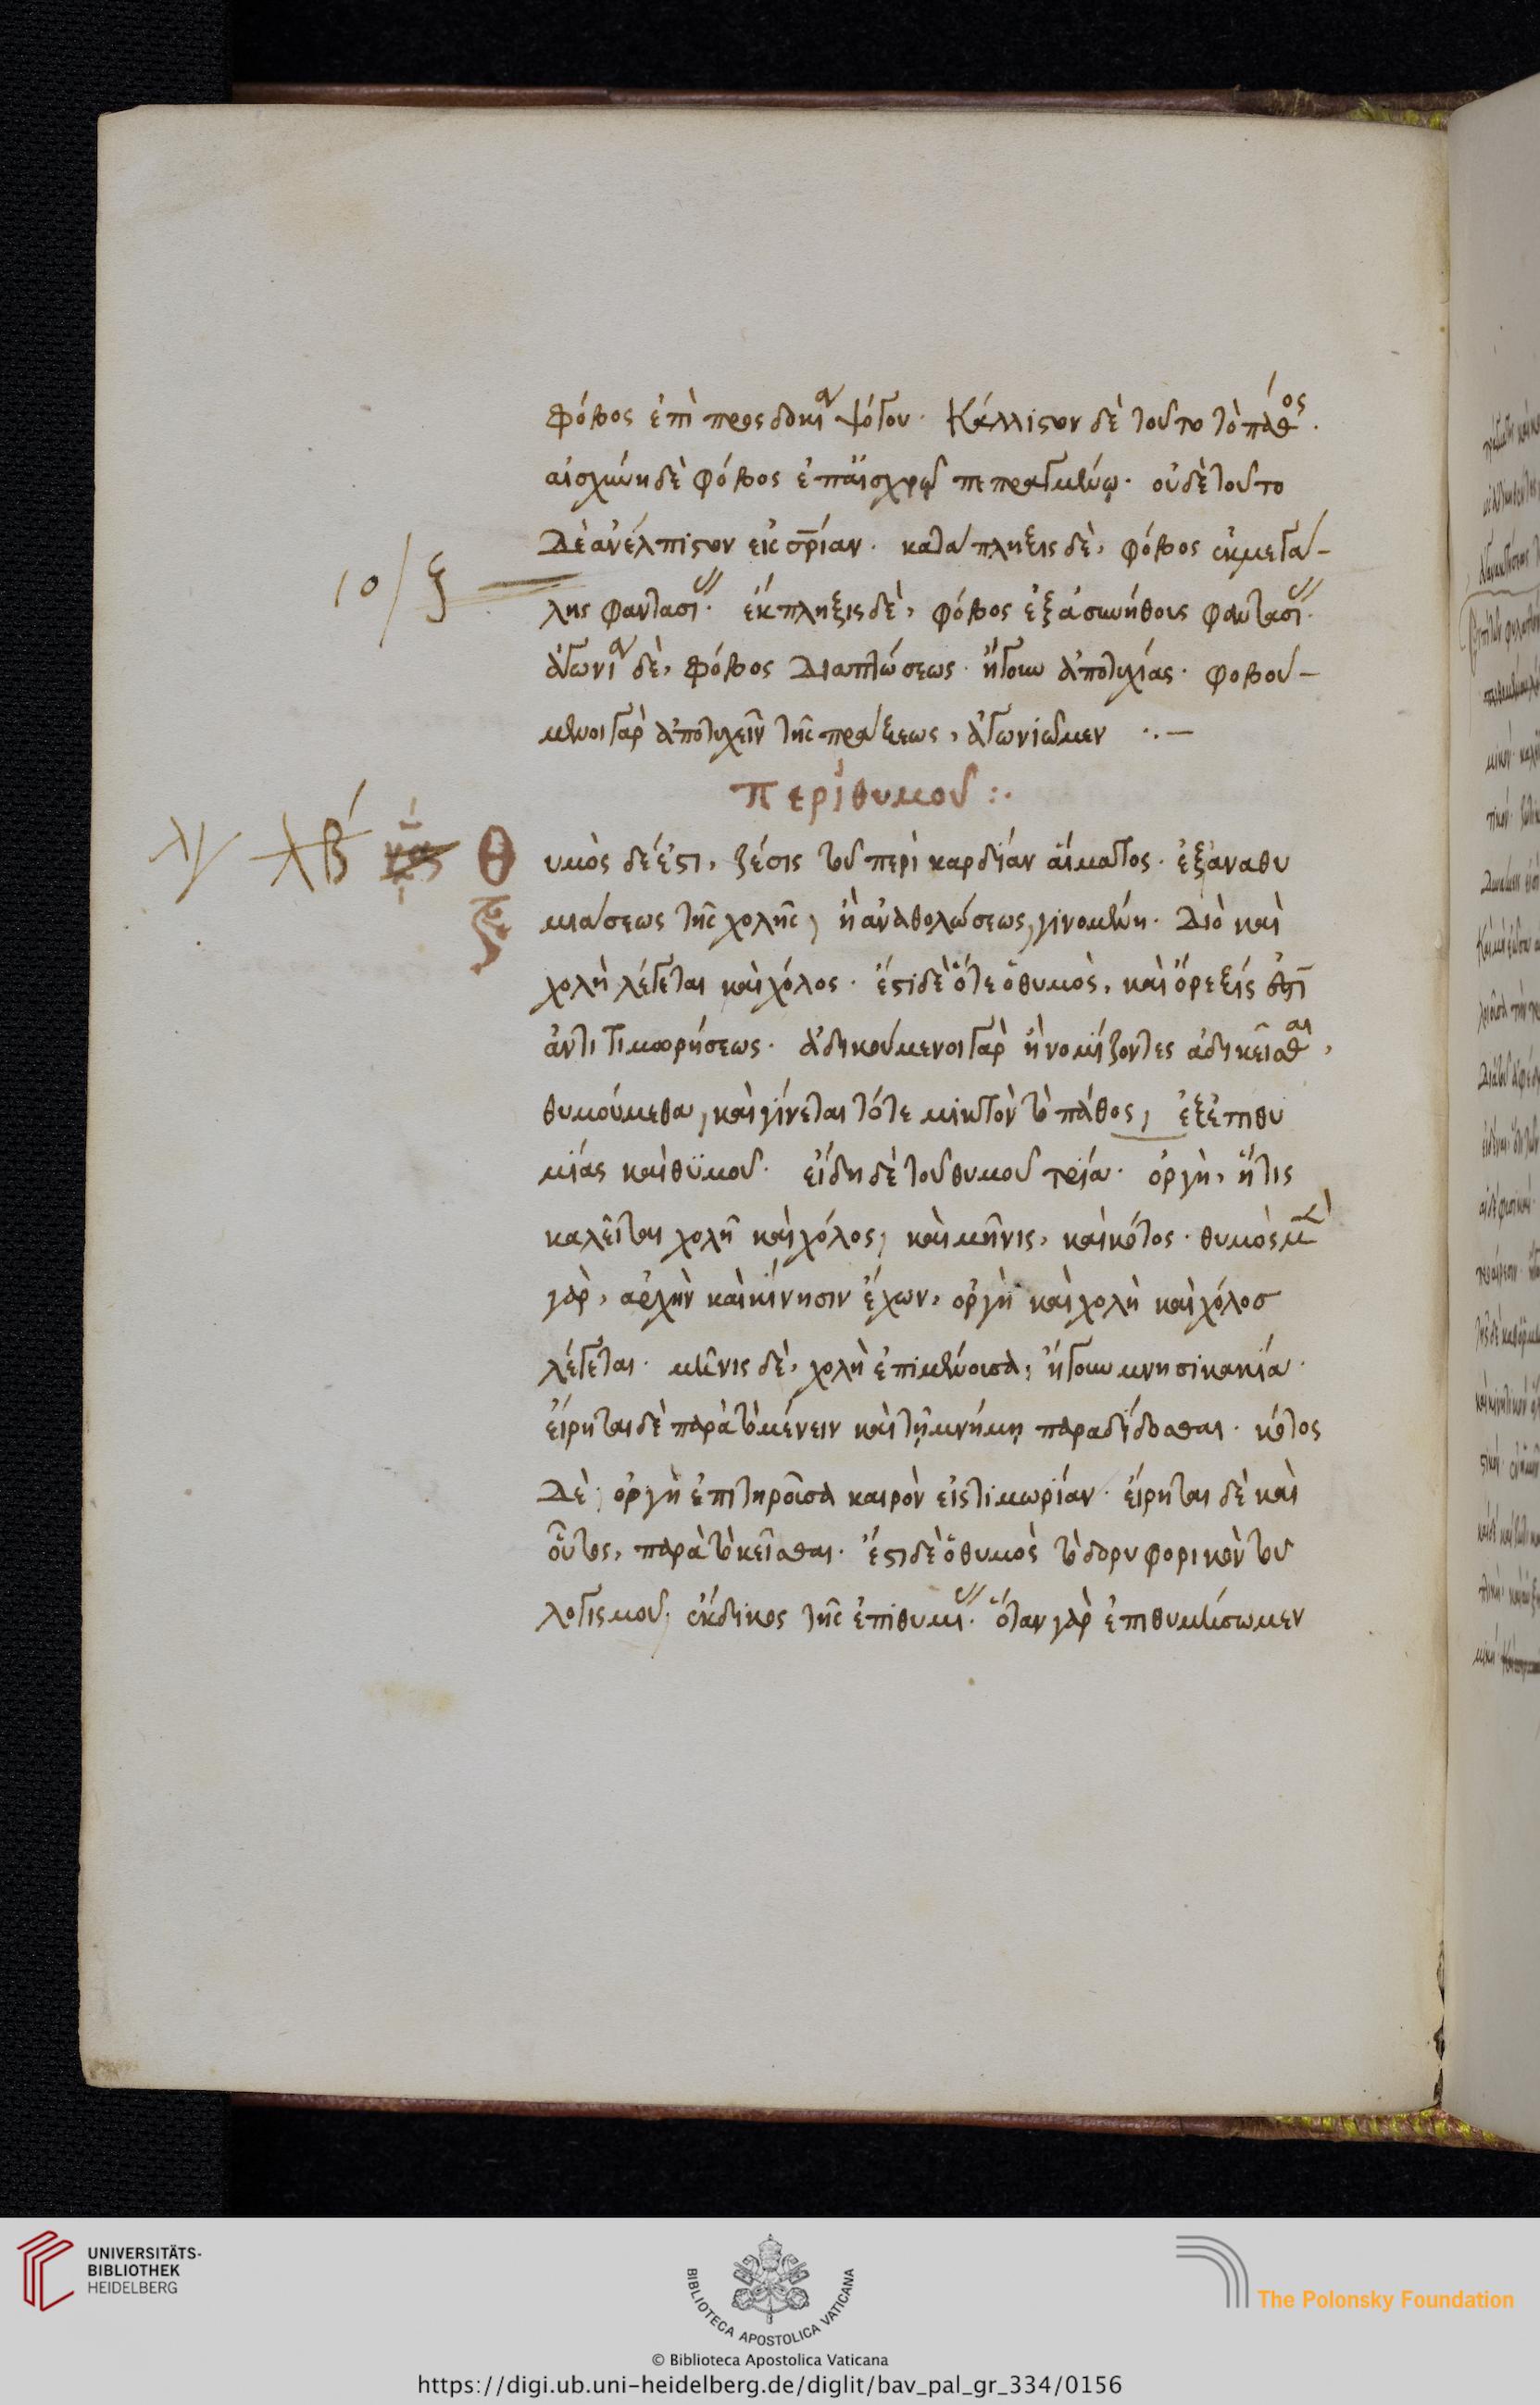 φόβος ἐπὶ προσδοκίᾳ ψόγου· Κάλλιστον δὲ τοῦτο τὸ πάθος·
αἰσχύνη δὲ φόβος ἐπ' αἰσχρῷ πεπραγμένῳ· οὐδὲ τοῦτο
δὲ ἀνέλπιστον εἰς σρίαν· κατάπληξις δὲ, φόβος ἐκ μεγά-
λης φαντασίας· ἔκπληξις δὲ, φόβος ἐξ ἀσυνήθους φαντασίας·
ἀγωνία δὲ, φόβος διαπτώσεως· ἤγουν ἀποτυχίας· φοβού-
μενοι γὰρ ἀποτυχεῖν τῆς πράξεως, ἀγωνιῶμεν ·.–
περὶ θυμοῦ :·
10/ξ
λγ λβ να Θυμὸς δέ ἐστι, ζέσις τοῦ περὶ καρδίαν αἵματος· ἐξ ἀναθυ
ξ μιάσεως τῆς χολῆς, ἢ ἀναθολώσεως, γινομένη· Διὸ καὶ
χολὴ λέγεται καὶ χόλος· ἔστι δὲ ὅτε ὁ θυμὸς, καὶ ὄρεξίς ἐστὶ
ἀντιτιμωρήσεως· ἀδικούμενοι γὰρ ἢ νομίζοντες ἀδικεῖσθαι,
θυμούμεθα, καὶ γίνεται τότε μικτὸν τὸ πάθος, ἐξ ἐπιθυ
μίας καὶ θϋμοῦ· εἴδη δὲ τοῦ θυμοῦ τρία· ὀργὴ, ἥτις
καλεῖται χολὴ καὶ χόλος, καὶ μῆνις, καὶ κότος· θυμὸς μὲν
γὰρ, ἀρχὴν καὶ κίνησιν ἔχων, ὀργὴ καὶ χολὴ καὶ χόλοσ
λέγεται· μῆνις δὲ, χολὴ ἐπιμένουσα, ἤγουν μνησικακία·
εἴρηται δὲ παρὰ τὸ μένειν καὶ τῇ μνήμῃ παραδίδοσθαι· κότος
δὲ, ὀργὴ ἐπιτηροῦσα καιρὸν εἰς τιμωρίαν· εἴρηται δὲ καὶ
οὗτος, παρὰ τὸ κεῖσθαι· ἔστι δὲ ὁ θυμὸς τὸ δορυφορικὸν τοῦ
λογισμοῦ, ἔκδικος τῆς ἐπιθυμίας· ὅταν γὰρ ἐπιθυμήσωμεν
UNIVERSITÄTS-
BIBLIOTHEK
HEIDELBERG
BIBLIOTECA APOSTOLICA VATICANA
The Polonsky Foundation
© Biblioteca Apostolica Vaticana
https://digi.ub.uni-heidelberg.de/diglit/bav_pal_gr_334/0156